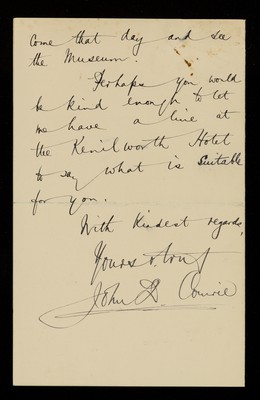 come that day and see
the Museum.
Perhaps you would
be kind enough to let
me have a line at
the Kenilworth Hotel
to say what is suitable
for you.
With kindest regards,
Yours
John D. Comrie